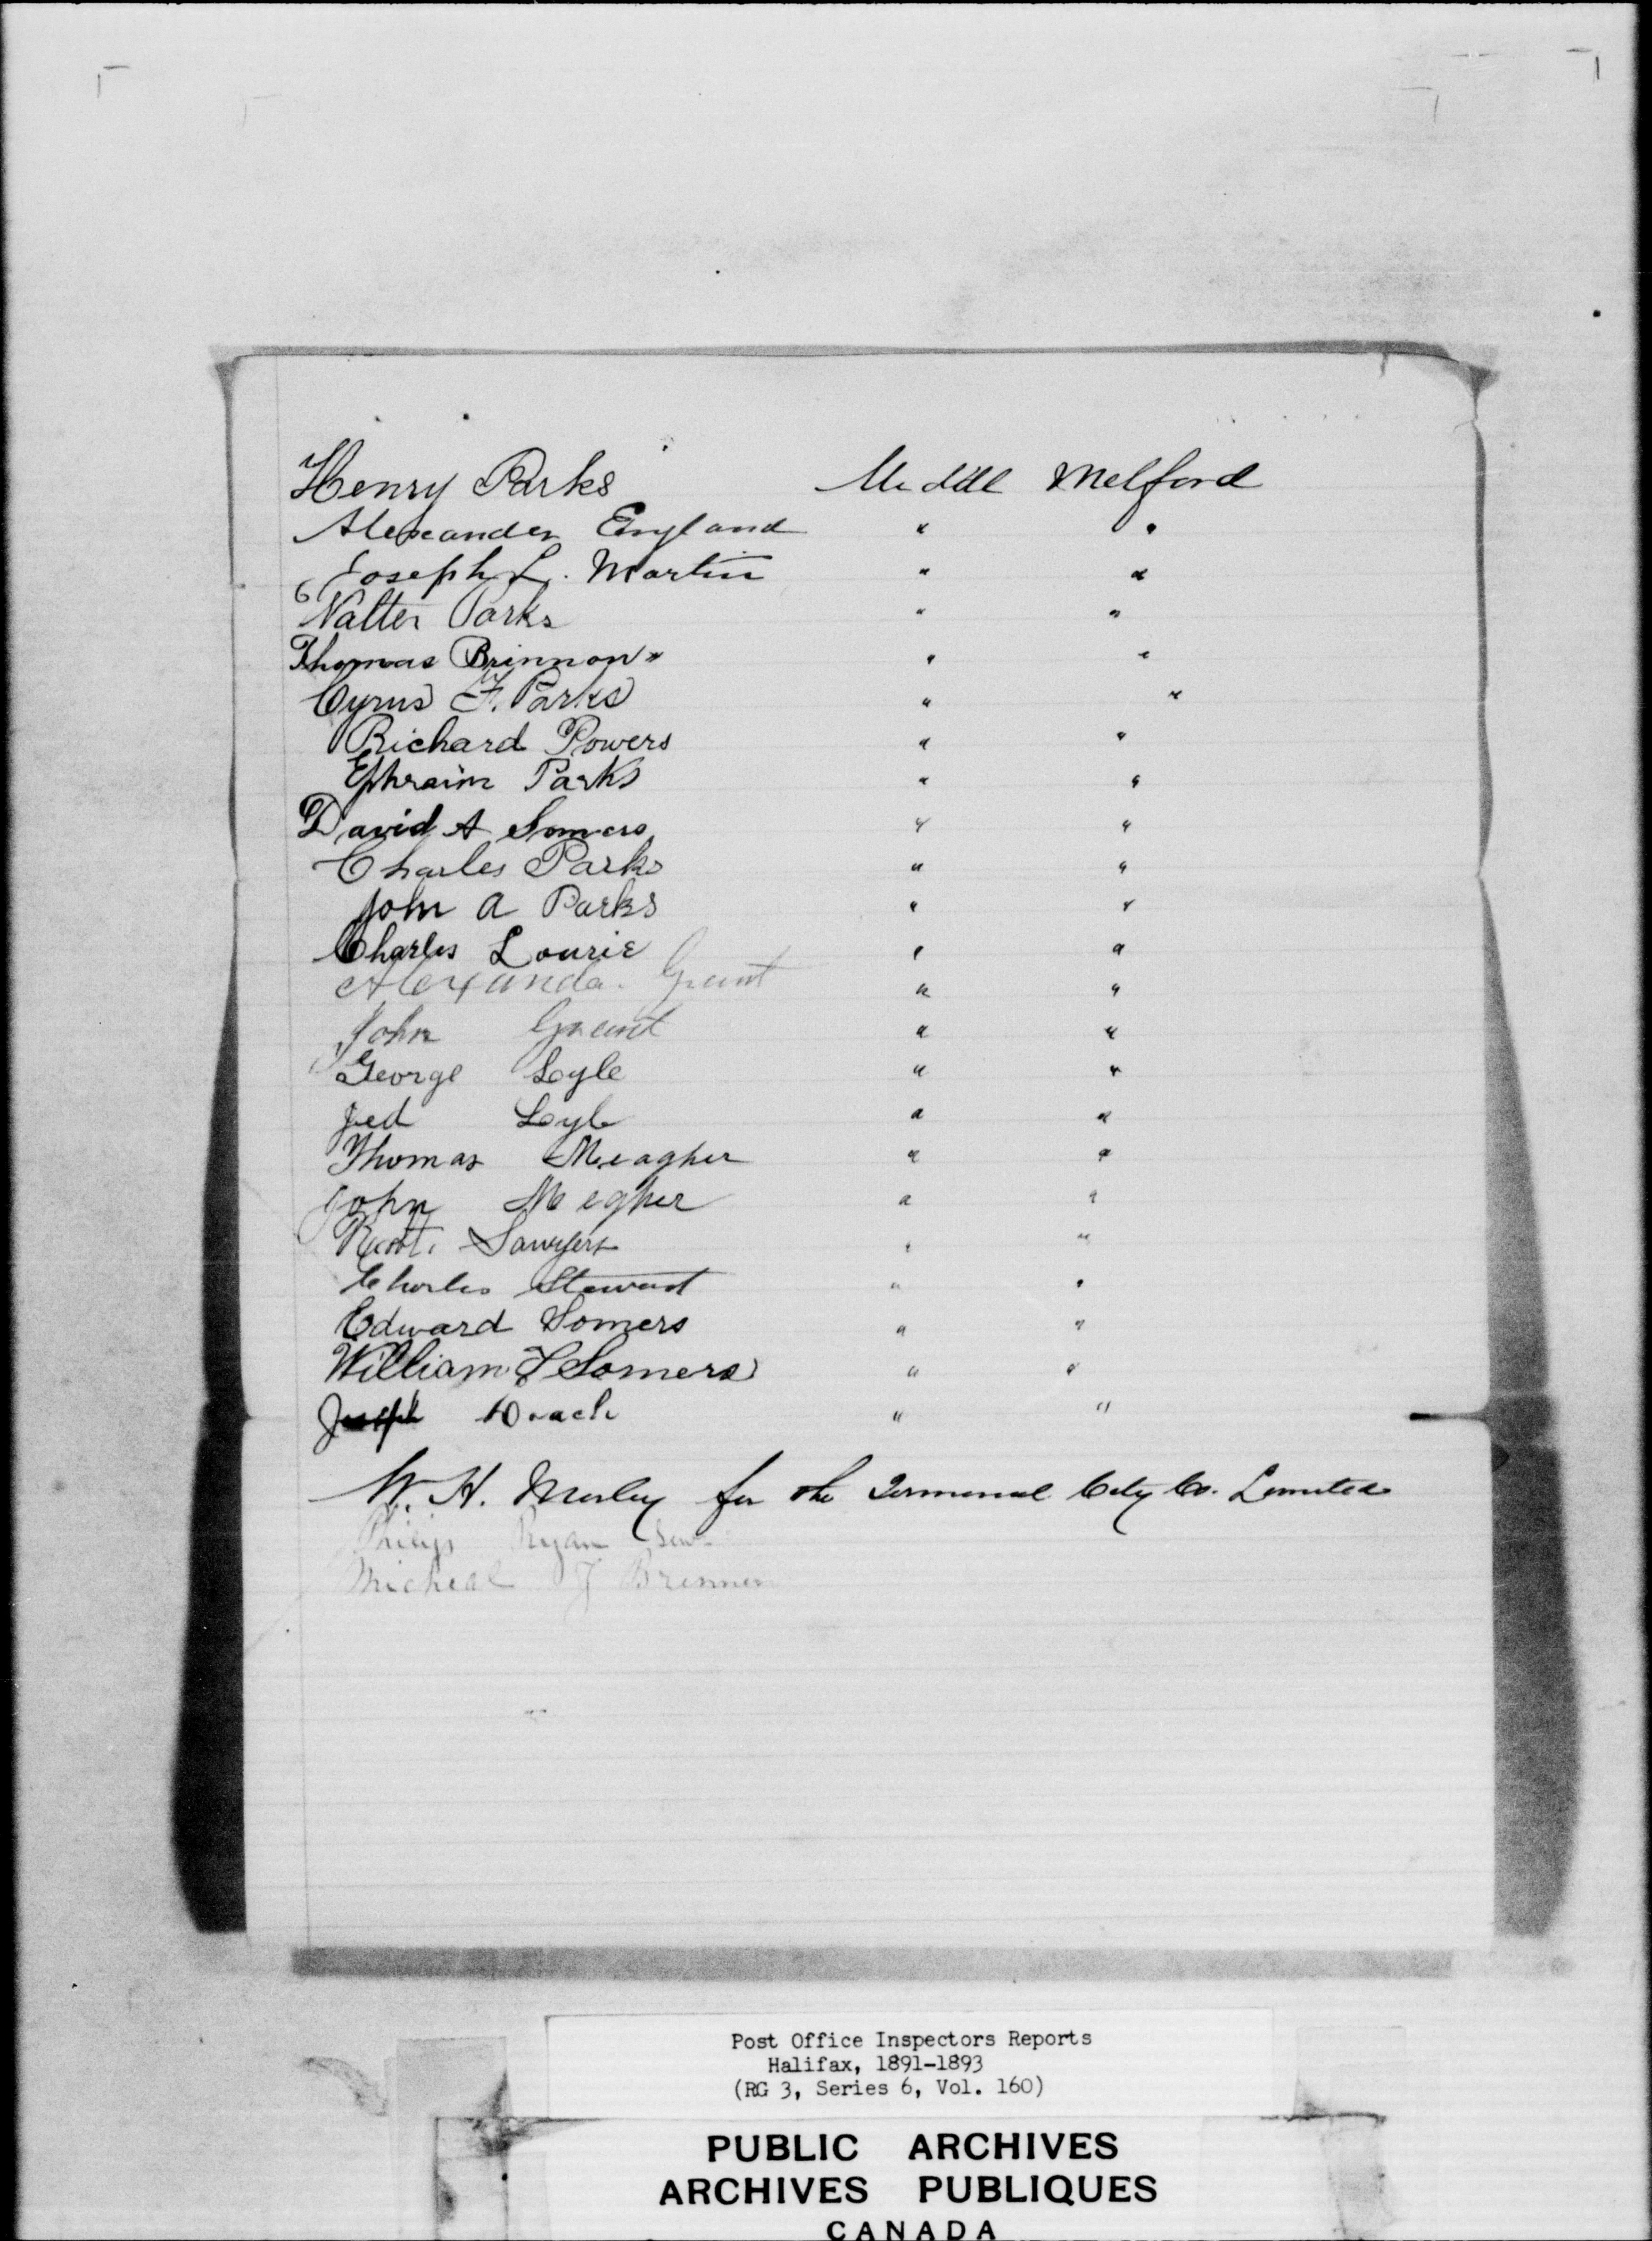 Henry Parks Middle Melford
Alexander England " "
Joseph L. Martin " "
6
Walter Parks " "
Thomas Brinnon " "
Cyrus F. Parks " "
Richard Powers " "
Ephraim Parks " "
David A Somers " "
Charles Parks " "
John A Parks " "
Charles Lourie " "
Alexander Grant " "
John Graint " "
George Loyle " "
Jed Loyle " "
Thomas Meagher " "
John Megher " "
Robt. Sawyers " "
Charles Stewart " "
Edward Somers " "
William F Somers " "
Joseph " "
W. H. for the Terminal City Co. Limited
Philip Ryan Senr
Micheal J Brennen
Post Office Inspectors Reports
Halifax, 1891-1893
(RG 3, Series 6, Vol. 160)
PUBLIC ARCHIVES
ARCHIVES PUBLIQUES
CANADA